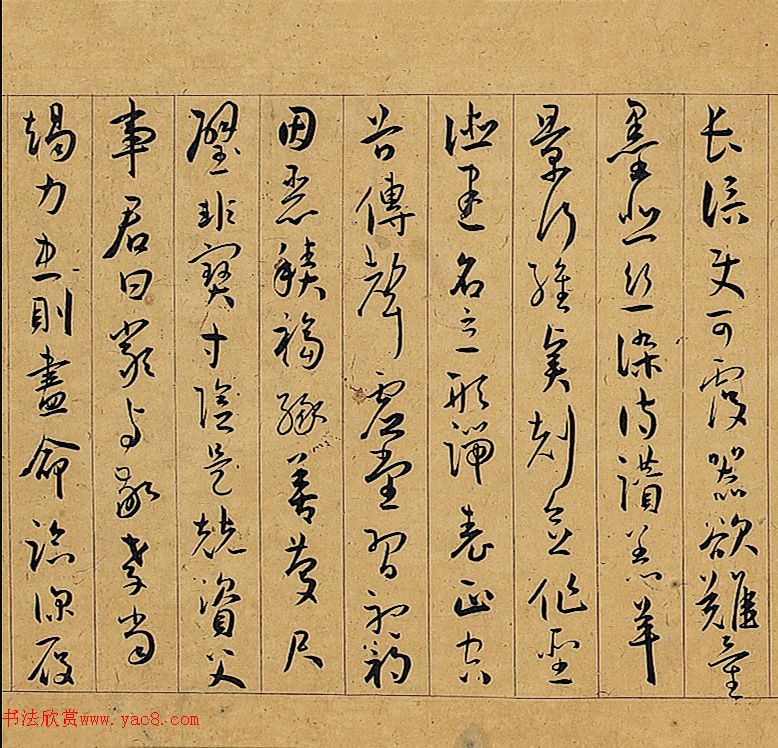 長信使可覆器欲難量
墨悲絲染詩讚羔羊
景行維賢剋念作聖
德建名立形端表正空
谷傳聲虛堂習聽禍
因惡積福緣善慶尺
璧非寶寸陰是競資父
事君曰嚴與敬孝當
竭力忠則盡命臨深履
书法欣赏www.yac8.com